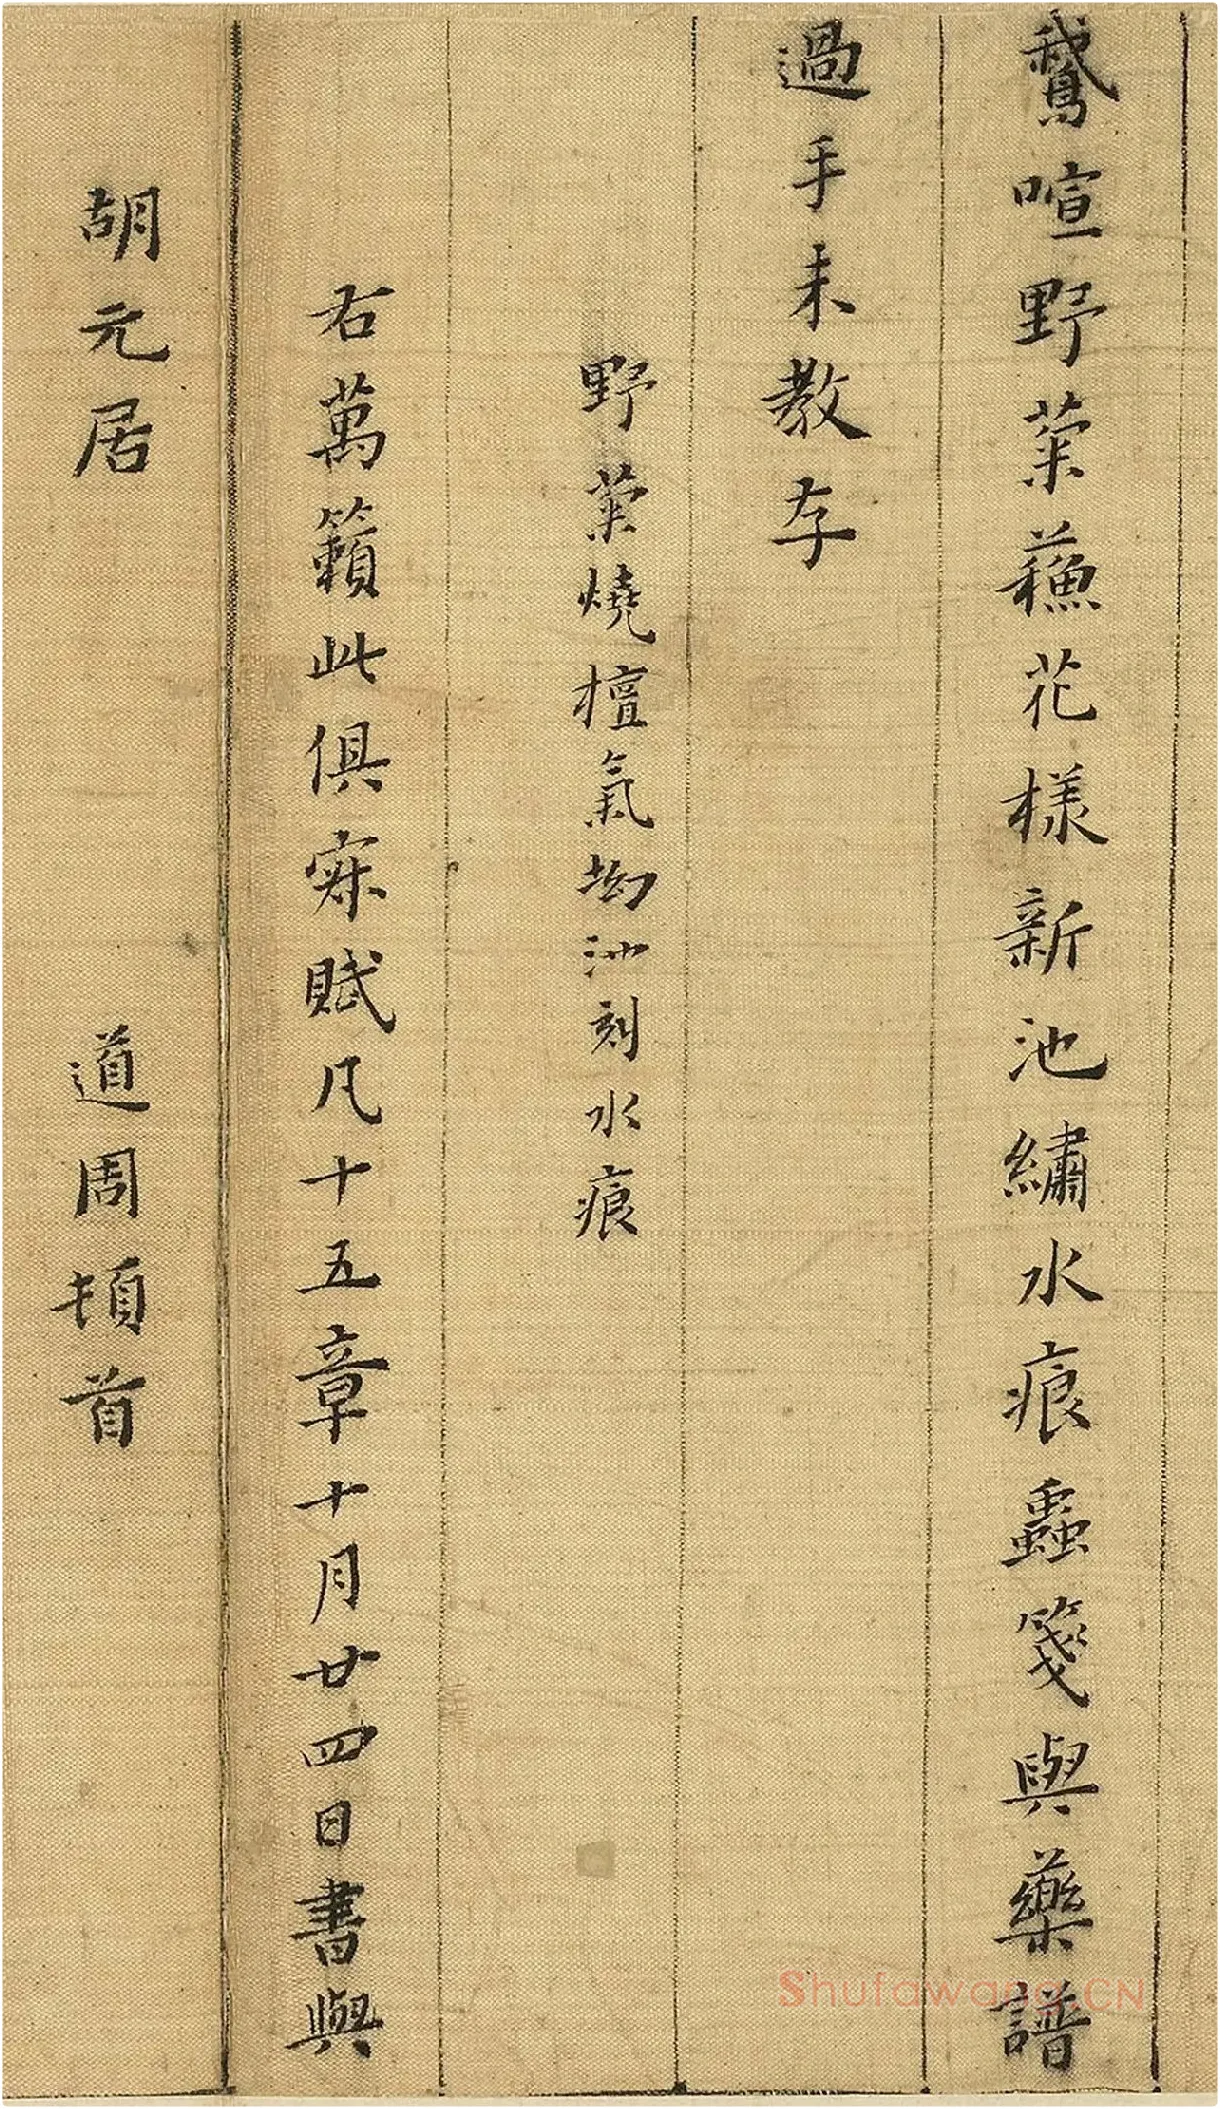 鵞喧野菜蘓花樣新池繡水痕蟸箋與藥譜
過手未教存
野菜燒檀氣坳池刻水痕
右萬籟此俱寂賦凡十五章十月廿四日書與
胡元居　道周頓首
Shufawang.CN